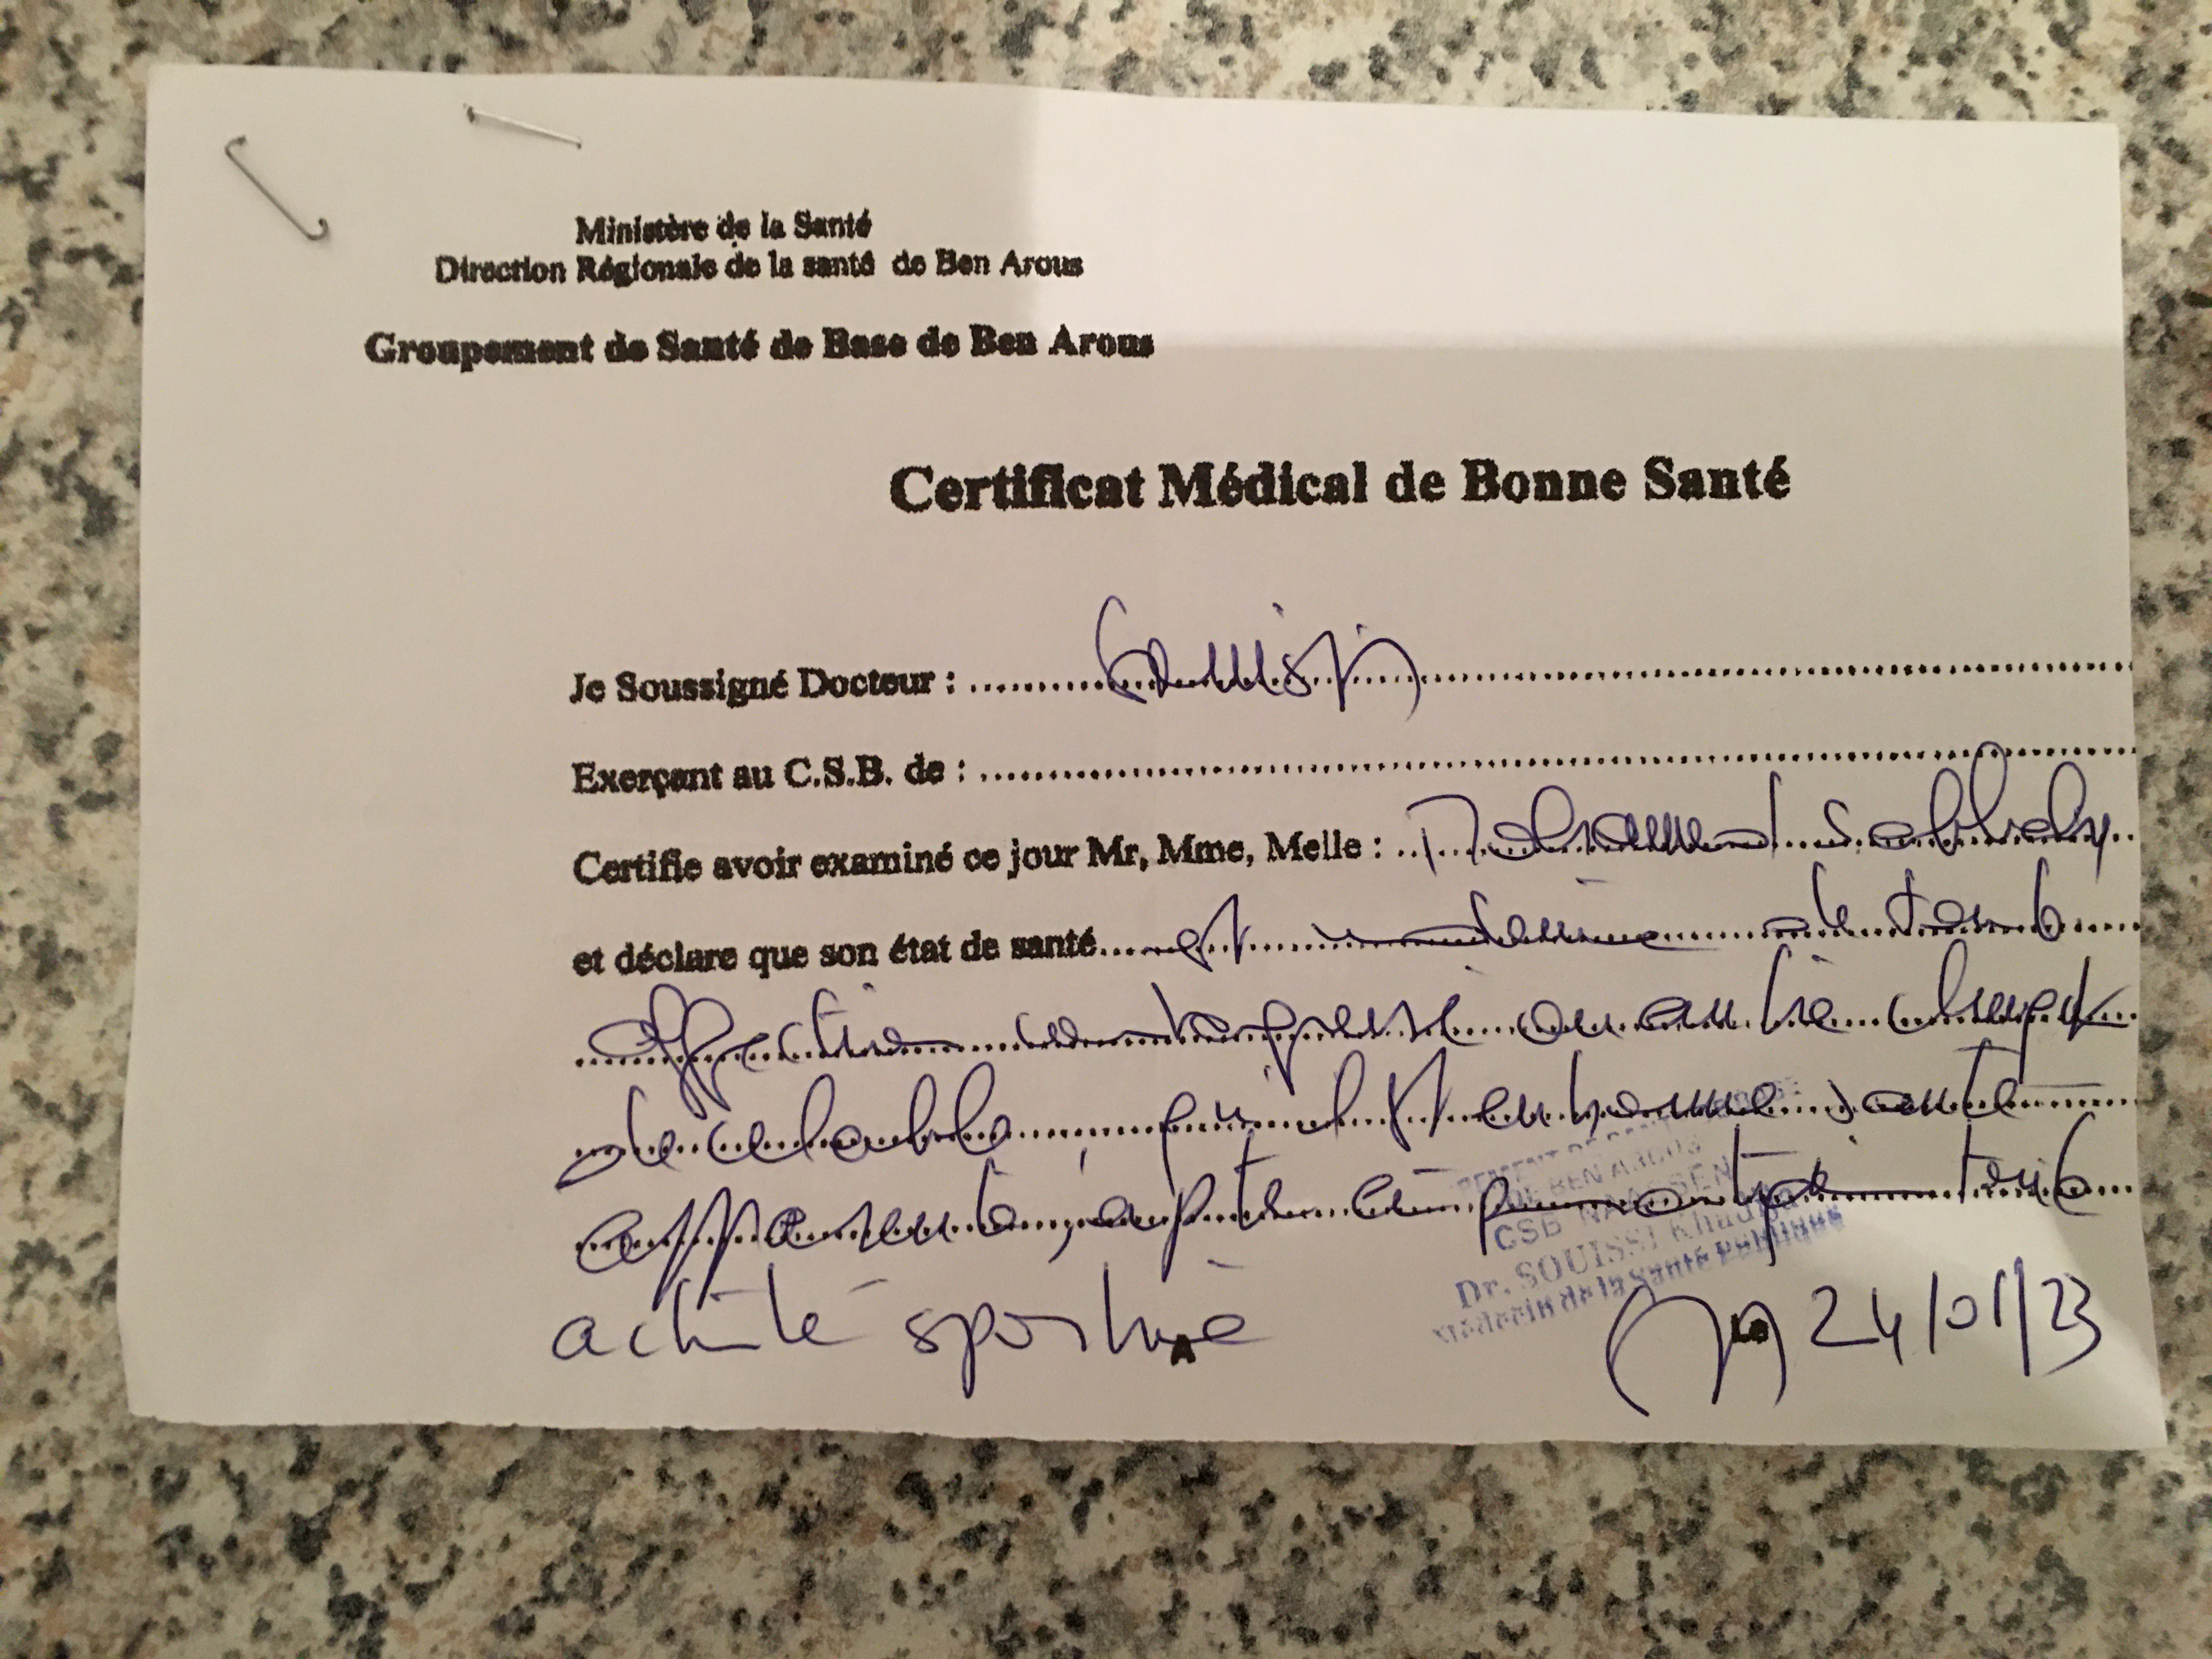 Ministère de la Santé
Direction Régionale de la santé de Ben Arous
Groupement de Santé de Base de Ben Arous
Certificat Médical de Bonne Santé
Je Soussigné Docteur : Souissi
Exerçant au C.S.B. de :
Certifie avoir examiné ce jour Mr, Mme, Melle : Mohammed
et déclare que son état de santé est indemne de toute
affection contagieuse ou autre cliniquement
décelable, qu'il est en bonne santé
apparente, apte à pratiquer toute
activité sportive
DE BEN AROUS
CSB NAASSEN
Dr. SOUISSI Khadija
Médecin de la Santé Publique
A
Le 24/01/23